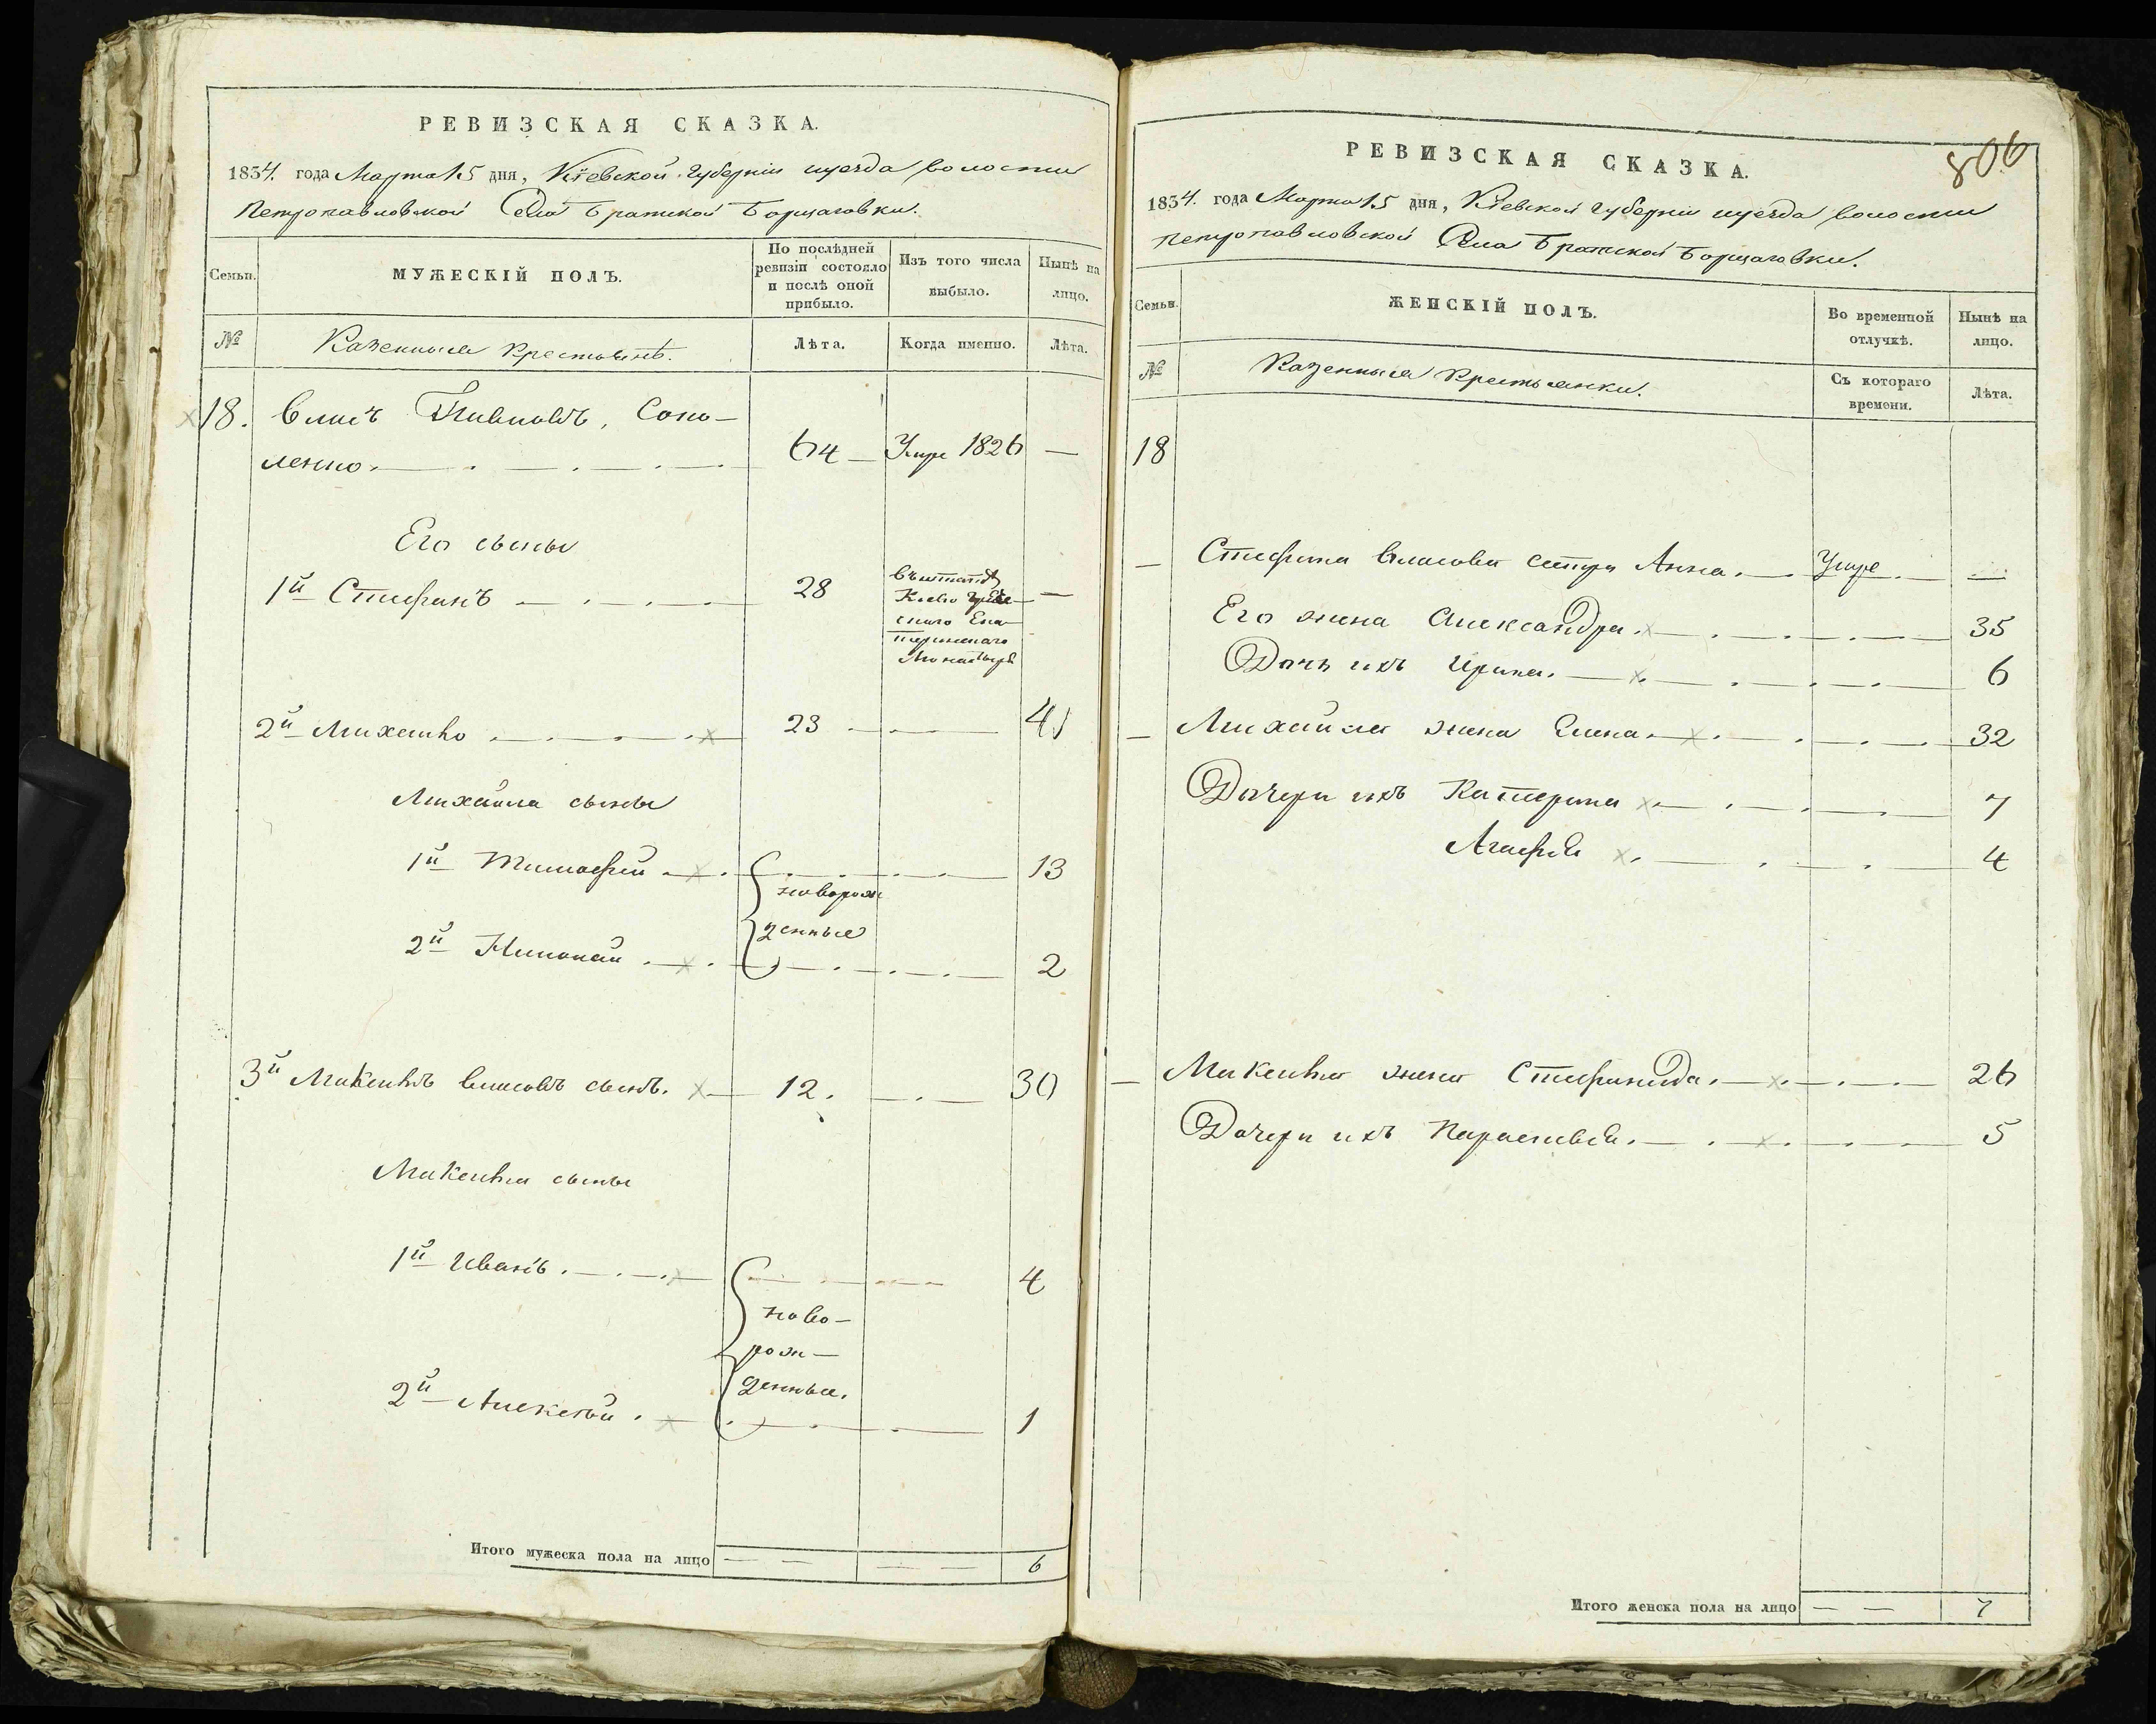 РЕВИЗСКАЯ СКАЗКА.
1834. года Марта 15 дня, Кіевской Губерніи уезда волости
Петропавловской Села Братской Борщаговки.
Семьи.
МУЖЕСКІЙ ПОЛЪ.
По послѣдней ревизіи состояло и послѣ оной прибыло.
Изъ того числа выбыло.
Нынѣ на лицо.
№
Казенныя Крестьянѣ.
Лѣта.
Когда именно.
Лѣта.
18. Власъ
ленко. 64 Умре 1826 —
Его сыны
1й Стефанъ 28 —
въ штатѣ
Кіево Грече-
скаго Ека-
терининскаго
Монастыря
2й Михайло 23 41
Михайла сыны
1й Тимофей 13
новорож
денные
2й Николай 2
3й Макеивъ Власовъ сынъ. 12. 30
Макеива сыны
1й Иванъ 4
ново-
рож-
денные.
2й Алексѣй 1
Итого мужеска пола на лицо — — — — 6
806
РЕВИЗСКАЯ СКАЗКА.
1834. года Марта 15 дня, Кіевской Губерніи уезда волости
Петропавловской Села Братской Борщаговки.
Семьи.
ЖЕНСКІЙ ПОЛЪ.
Во временной отлучкѣ.
Нынѣ на лицо.
№
Казенныя Крестьянки.
Съ котораго времени.
Лѣта.
18
Стефана Власова сестра Анна. Умре —
Его жена Александра. 35
Дочь ихъ Ирина. 6
Михайла жена Елена. 32
Дочери ихъ Катерина 7
Агафія 4
Макеива жена Стефанида. 26
Дочери ихъ Параскевія. 5
Итого женска пола на лицо — — 7